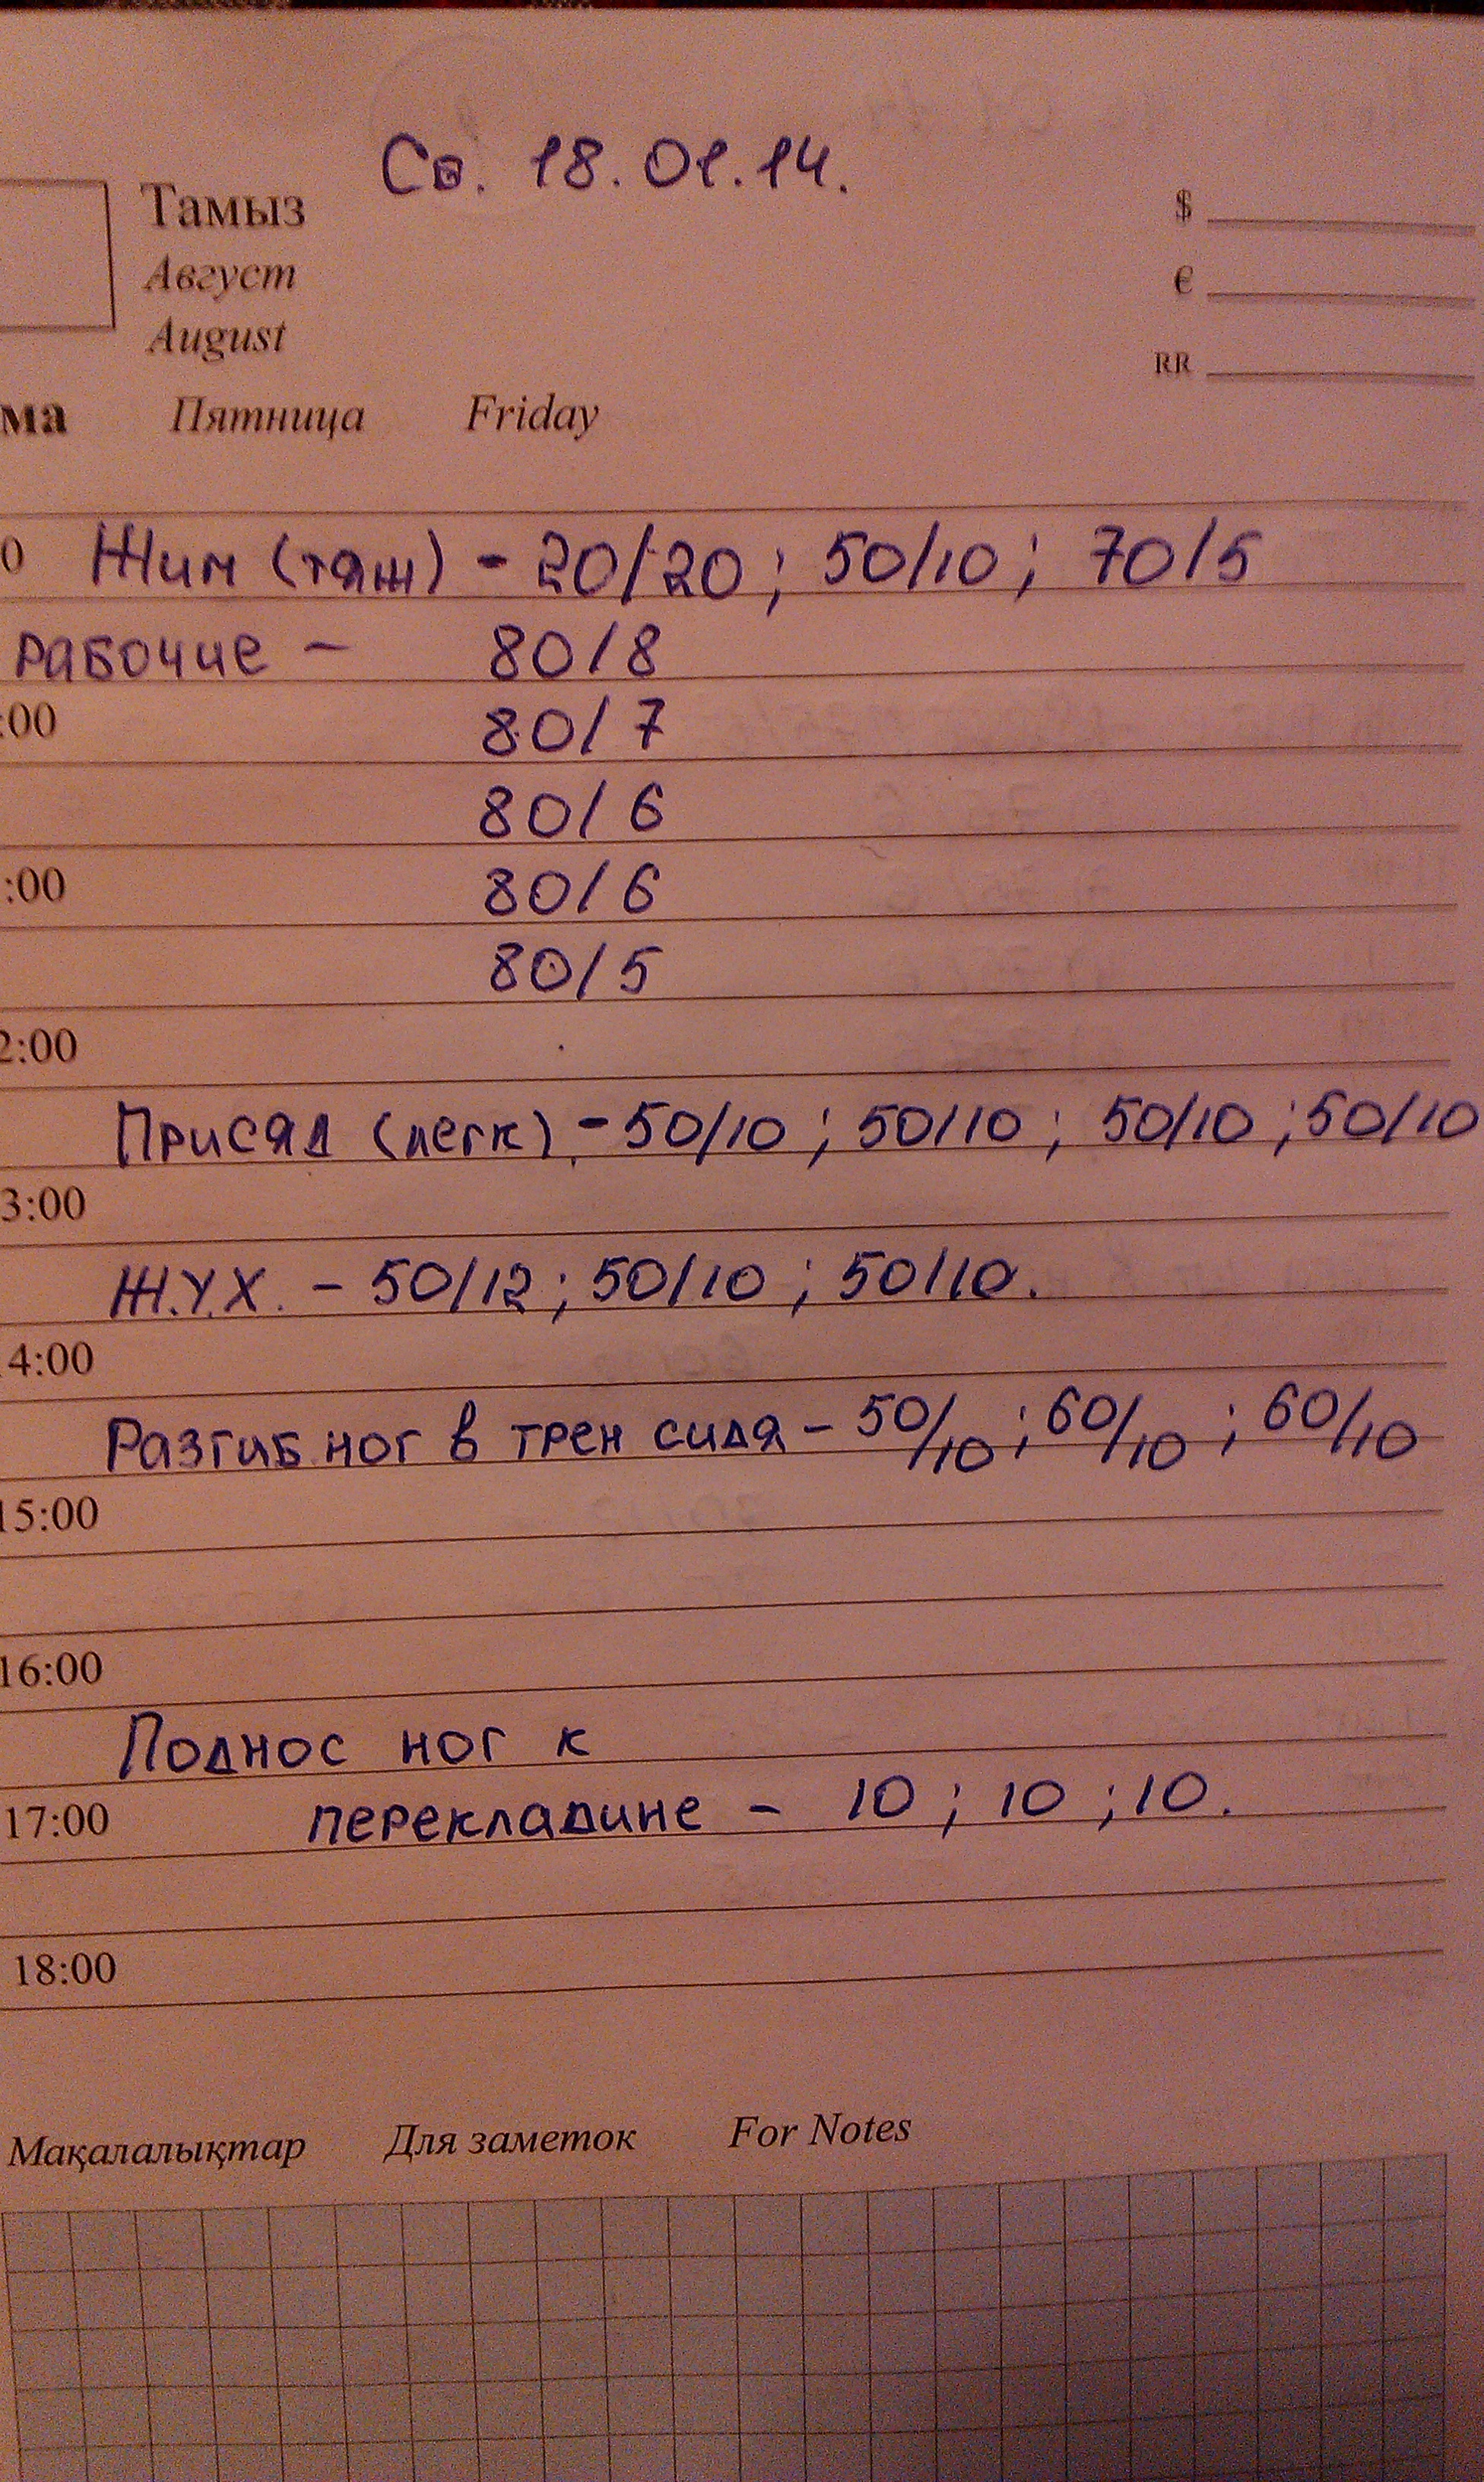 Сб. 18.01.14.
Тамыз
Август
August
$
€
RR
ма Пятница Friday
0 Жим (тяж) - 20/20 ; 50/10 ; 70/5
рабочие - 80/8
:00 80/7
80/6
:00 80/6
80/5
2:00
Присяд (легк) - 50/10 ; 50/10 ; 50/10 ; 50/10
3:00
Ж.У.Х. - 50/12 ; 50/10 ; 50/10.
4:00
Разгиб ног в трен сидя - 50/10 ; 60/10 ; 60/10
15:00
16:00
Поднос ног к
17:00 перекладине - 10 ; 10 ; 10.
18:00
Мақалалықтар Для заметок For Notes